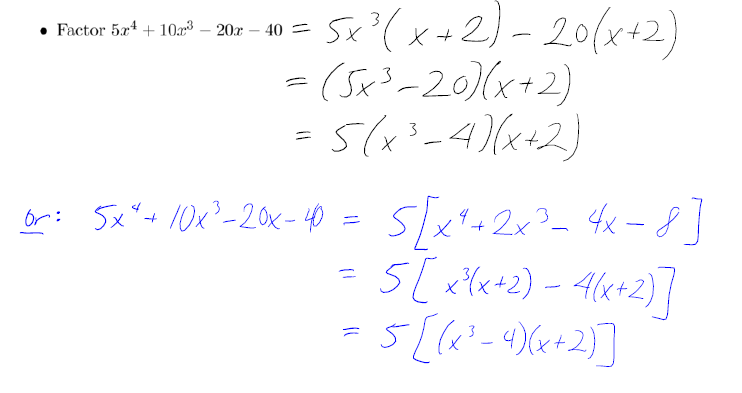 • Factor 5x⁴ + 10x³ − 20x − 40 = 5x³(x+2) − 20(x+2)
= (5x³−20)(x+2)
= 5(x³−4)(x+2)
or: 5x⁴ + 10x³ − 20x − 40 = 5[x⁴ + 2x³ − 4x − 8]
= 5[x³(x+2) − 4(x+2)]
= 5[(x³−4)(x+2)]